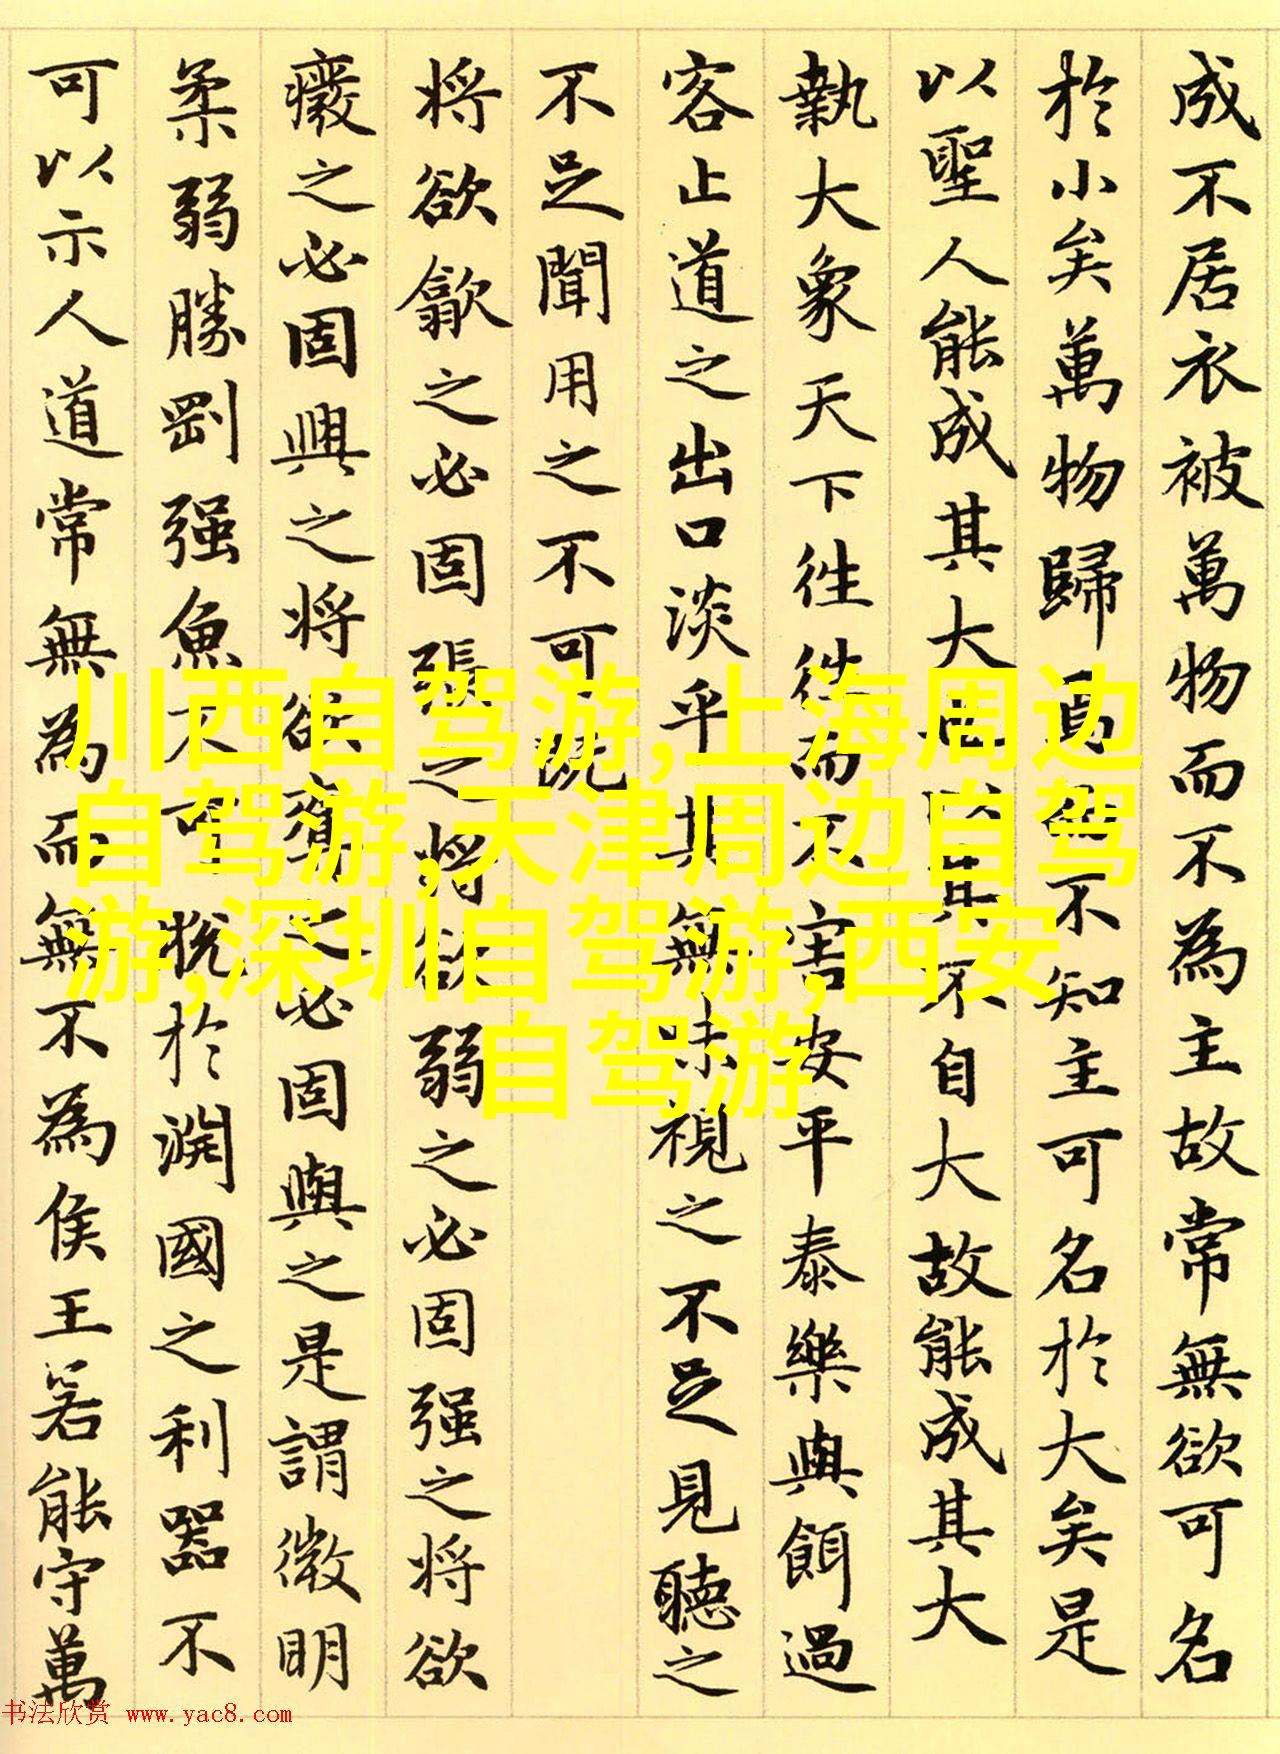 成不居衣被萬物而不為主故常無欲可名
於小矣萬物歸焉不知主可名於大矣是
以聖人能成其大也以其不自大故能成其大
執大象天下往往而不害安平泰樂與餌過
客止道之出口淡乎其無味視之不足見聽之
不足聞用之不可既
将欲歙之必固張之将欲弱之必固强之将欲
癈之必固興之将欲奪之必固與之是謂微明
柔弱勝剛强魚不可脱於淵國之利器不
可以示人道常無為而無不為侯王若能守萬
川西自驾游,上海周边
自驾游,天津周边自驾
游,深圳自驾游,西安
自驾游
书法欣赏 www.yac8.com